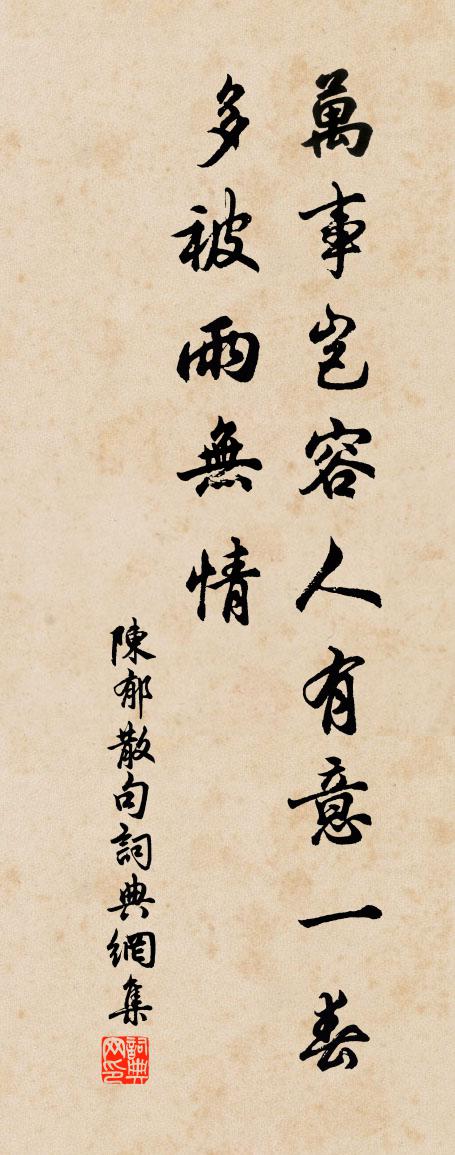 萬事岂容人有意一春
多被雨無情
陳郁散句詞典網集
詞典网印